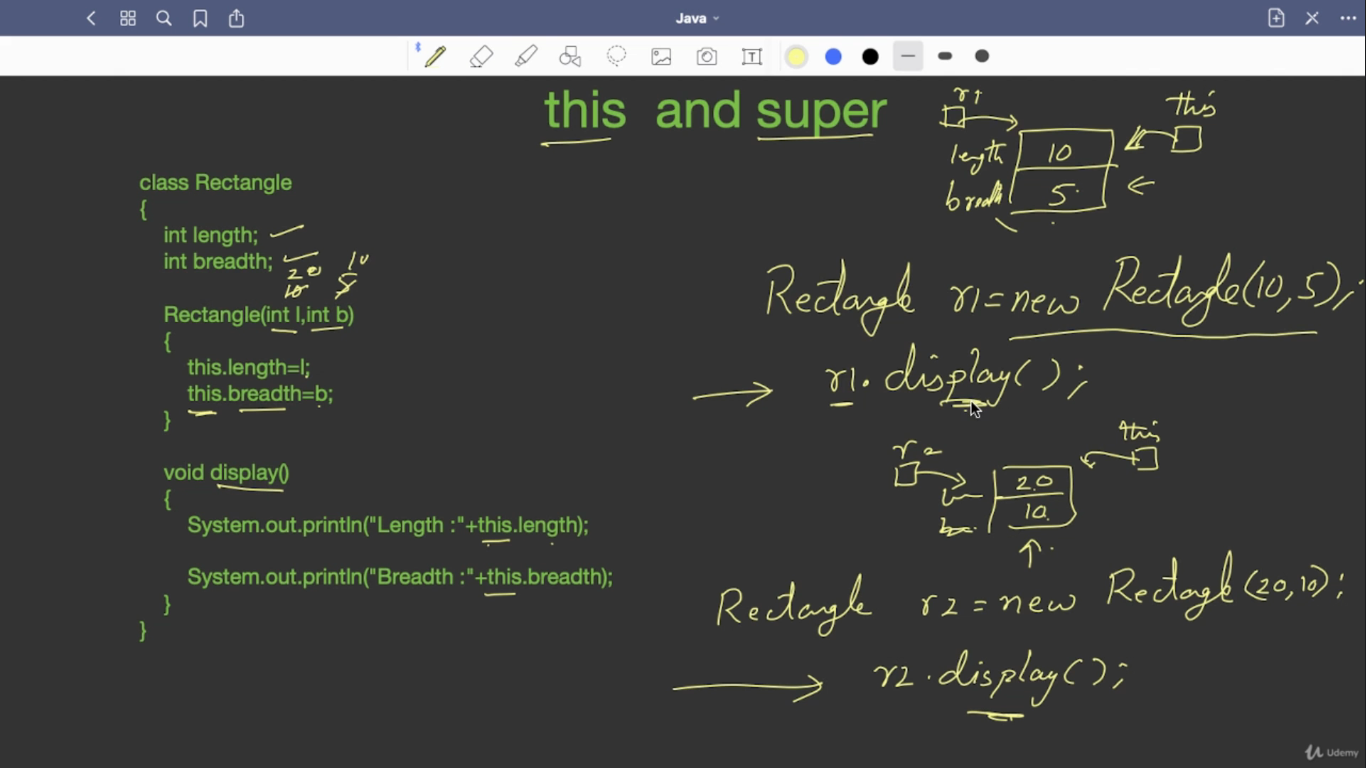 Java
this and super
class Rectangle
{
int length;
int breadth;
20 10
10 5
Rectangle(int l,int b)
{
this.length=l;
this.breadth=b;
}
void display()
{
System.out.println("Length :"+this.length);
System.out.println("Breadth :"+this.breadth);
}
}
r1 this
length 10
breadth 5
Rectangle r1=new Rectagle(10,5);
r1.display();
r2 this
l 20
b 10
Rectangle r2=new Rectagle(20,10);
r2.display();
Udemy